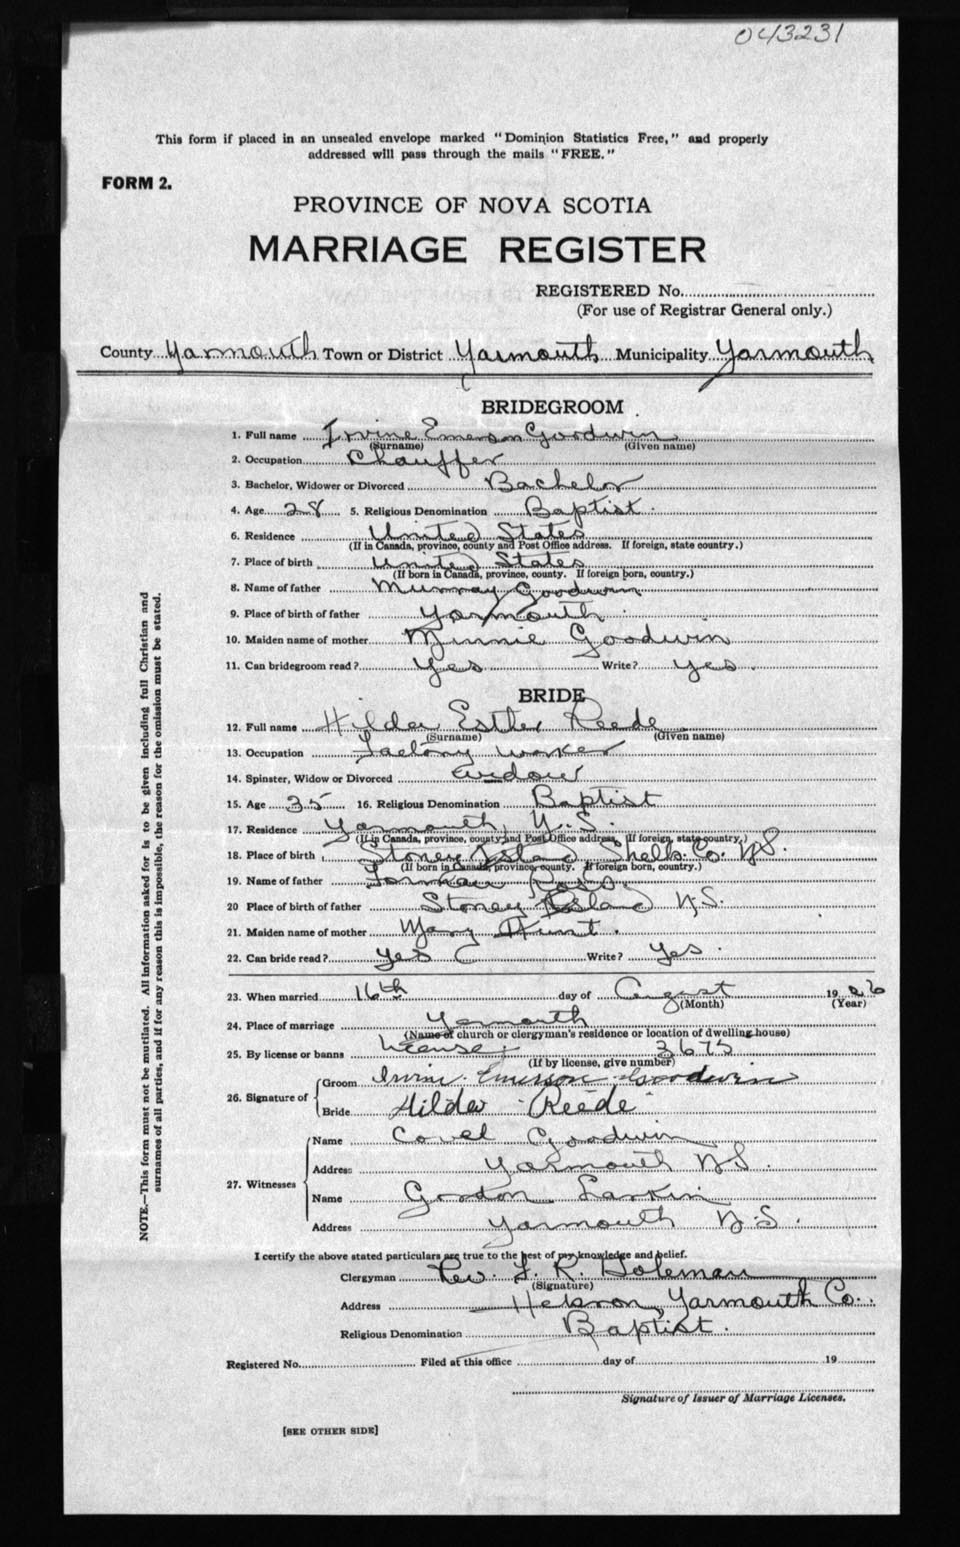 043231
This form if placed in an unsealed envelope marked "Dominion Statistics Free," and properly
addressed will pass through the mails "FREE."
FORM 2.
PROVINCE OF NOVA SCOTIA
MARRIAGE REGISTER
REGISTERED No.
(For use of Registrar General only.)
County Yarmouth Town or District Yarmouth Municipality Yarmouth
BRIDEGROOM
1. Full name Irvine Emerson Goodwin
(Surname) (Given name)
2. Occupation Chauffer
3. Bachelor, Widower or Divorced Bachelor
4. Age 28 5. Religious Denomination Baptist.
6. Residence United States
(If in Canada, province, county and Post Office address. If foreign, state country.)
7. Place of birth United States
(If born in Canada, province, county. If foreign born, country.)
8. Name of father Murray Goodwin
9. Place of birth of father Yarmouth
10. Maiden name of mother Minnie Goodwin
11. Can bridegroom read? Yes Write? Yes.
BRIDE
12. Full name Hilda Esther Reede
(Surname) (Given name)
13. Occupation Factory worker
14. Spinster, Widow or Divorced Widow
15. Age 35 16. Religious Denomination Baptist
17. Residence Yarmouth, N.S.
(If in Canada, province, county and Post Office address. If foreign, state country.)
18. Place of birth Stoney Island Shelb. Co. N.S.
(If born in Canada, province, county. If foreign born, country.)
19. Name of father
20 Place of birth of father Stoney Island N.S.
21. Maiden name of mother Mary Hunt.
22. Can bride read? Yes Write? Yes.
23. When married 16th day of August 1926
(Month) (Year)
24. Place of marriage Yarmouth
(Name of church or clergyman's residence or location of dwelling house)
25. By license or banns License 3675
(If by license, give number)
26. Signature of Groom Irvine Emerson Goodwin
Bride Hilda Reede
27. Witnesses Name Covel Goodwin
Address Yarmouth N.S.
Name Gordon Larkin
Address Yarmouth N.S.
I certify the above stated particulars are true to the best of my knowledge and belief.
Clergyman Rev. F. R. Holeman
(Signature)
Address Hebron, Yarmouth Co.
Religious Denomination Baptist.
Registered No. Filed at this office day of 19
Signature of Issuer of Marriage Licenses.
[SEE OTHER SIDE]
NOTE.—This form must not be mutilated. All information asked for is to be given including full Christian and
surnames of all parties, and if for any reason this is impossible, the reason for the omission must be stated.